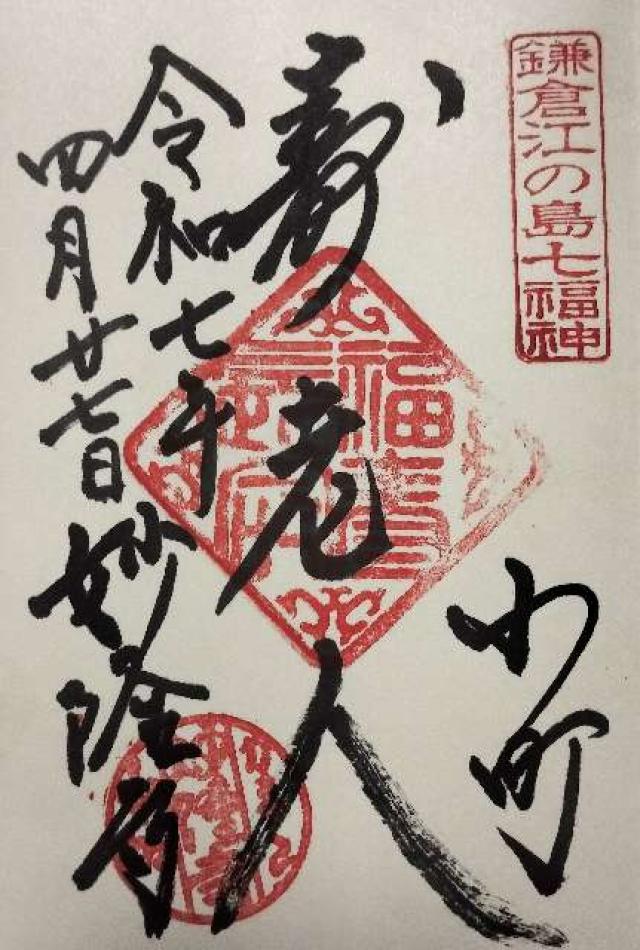 鎌倉江の島七福神
小町
壽老人
令和七年
四月廿七日
妙隆寺
福壽